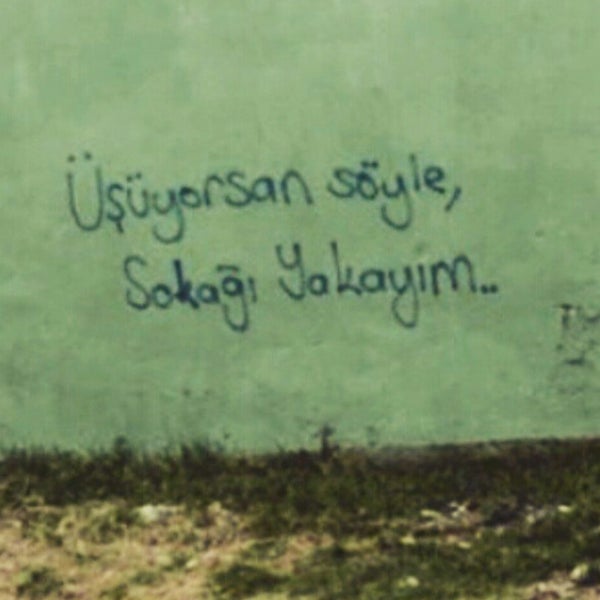 Üşüyorsan söyle,
Sokağı Yakayım..